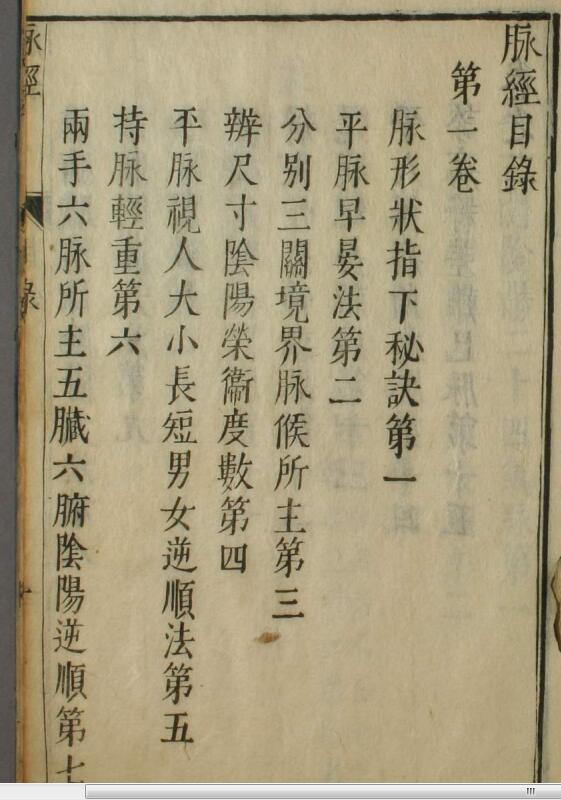 脉經目錄
第一卷
脉形狀指下秘訣第一
平脉早晏法第二
分别三關境界脉候所主第三
辨尺寸陰陽榮衞度數第四
平脉視人大小長短男女逆順法第五
持脉輕重第六
兩手六脉所主五臟六腑陰陽逆順第七
脉經
目錄